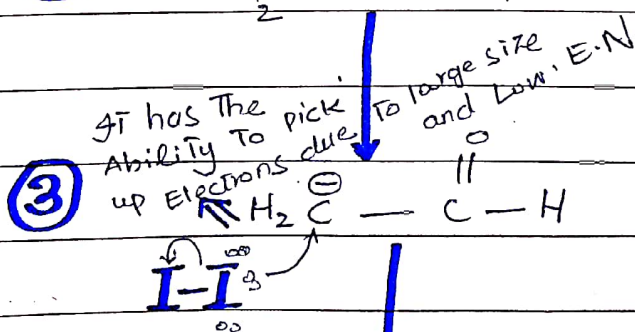 2
It has The
Ability To pick
up Electrons due To large size
and Low. E.N
O
||
3 H₂C⊖ — C — H
I — I